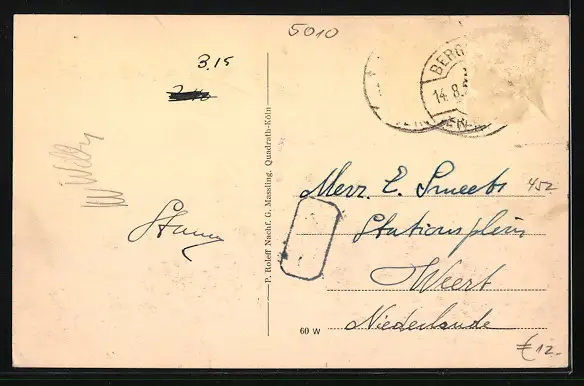 5010
3.15
BERG
14.8.
P. Roleff Nachf. G. Massling, Quadrath-Köln
Mevr. E. Smeets
452
Stationsplein
Weert
Niederlande
60 W
€ 12.-